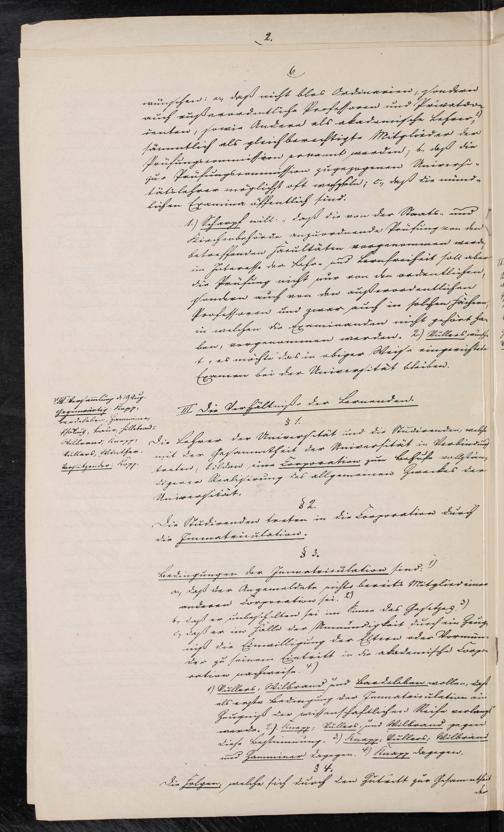 2.
6
wünschen: a, daß nicht blos Ordinarien, sondern
auch außerordentliche Professoren und Privatdo-
centen, sowie Andere als akademische Lehrer,
sämmtlich als gleichberechtigte Mitglieder der
Prüfungscommission ernannt werden; b, daß die
zur Prüfungscommission zugezogenen Universi-
tätslehrer möglichst oft wechseln; c, daß die münd-
lichen Examina öffentlich sind.
1.) will: daß die von der Staats- und
Kirchenbehörde anzuordnende Prüfung von den
betreffenden Facultäten vorgenommen werde,
im Interesse der Lehr- und Lernfreiheit soll aber
die Prüfung nicht nur von den ordentlichen,
sondern auch von den außerordentlichen
Professoren und zwar auch in solchen Fächern,
in welchen die Examinanden nicht gehört ha-
ben, vorgenommen werden. 2) Vullers
es möchte das in obiger Weise eingerichtete
Examen bei der Universität bleiben.
Versammlung d.
Gegenwärtig: Knapp,
Bardeleben,
Hillebrand
Wilbrand, Knapp,
Vullers,
Vorsitzender: Kopp.
III. Die Verhältnisse der Lernenden.
§ 1.
Die Lehrer der Universität und die Studirenden, welche
mit der Gesammtheit der Universität in Verbindung
treten, bilden eine Corporation zur Behufe vollstän-
digerer Realisirung des allgemeinen Zweckes der
Universität.
§ 2.
Die Studirenden treten in die Corporation durch
die Immatriculation.
§ 3.
Bedingungen der Immatriculation sind: 1)
a, daß der Angemeldete nicht bereits Mitglied einer
anderen Corporation sei. 2)
b, daß er unbescholten sei im Sinne des Gesetzes. 3)
c, daß er im Falle der Unmündigkeit durch ein Zeug-
niß die Einwilligung der Eltern oder Vormün-
der zu seinem Eintritt in die akademische Corpo-
ration nachweise. 4)
1) Vullers, Wilbrand und Bardeleben wollen, daß
als erste Bedingung der Immatriculation ein
Zeugniß der wissenschaftlichen Reife verlangt
werde. 2) Knapp, Vullers und Wilbrand gegen
diese Bestimmung. 3) Knapp, Vullers, Wilbrand
und dagegen. 4) Knapp dagegen.
§ 4.
Die Folgen, welche sich durch den Zutritt zur Gesammtheit
der